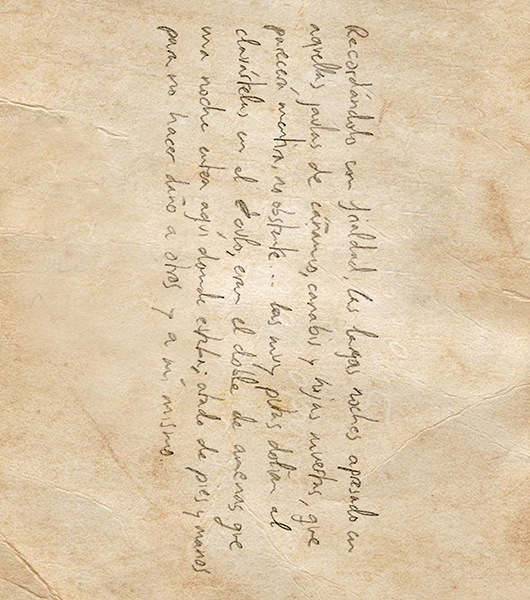 Recordándolo con frialdad, las largas noches apresado en
aquellas jaulas de cáñamo, canabis y hojas muertas, que
parecerá mentira, no obstante... las muy putas dolían al
clavártelas en el culo, eran el doble de amenas que
una noche entera aquí donde estoy, atado de pies y manos
para no hacer daño a otros y a mí mismo.